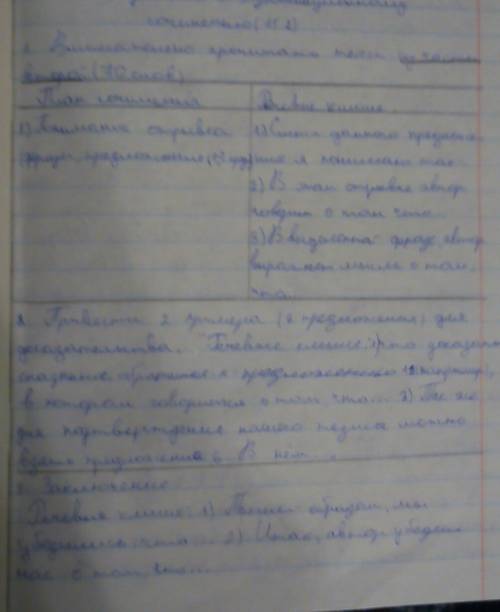 сочинению (11.2)
1. Внимательно прочитать текст
второй
План сочинения
Речевые клише.
1) Понимание отрывка
1) Смысл данного предложе-
ния я понимаю так
2) В этом отрывке автор
говорит о том что...
3) В выделенной фразе автор
выражает мысль о том,
что...
2. Привести 2 примера (2 предложения) для
доказательства. Речевые клише: 1) что доказать
сказанное обратимся к предложению
в котором говорится о том, что... 2) Так же
для подтверждения нашего тезиса можно
взять предложение 6. В нём...
Заключение
Речевые клише: 1) Таким образом, мы
убедились, что... 2) Итак, автор убедил
нас о том, что...